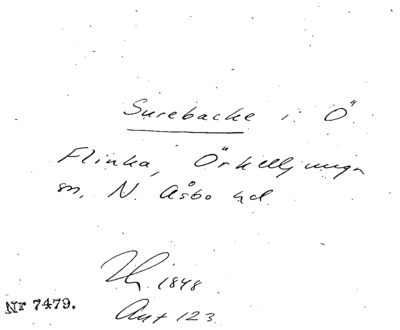 Surebacke i Ö
Flinka, Örkelljunga
sn, N. Åsbo hd
1848
Nr 7479.
Ant 123